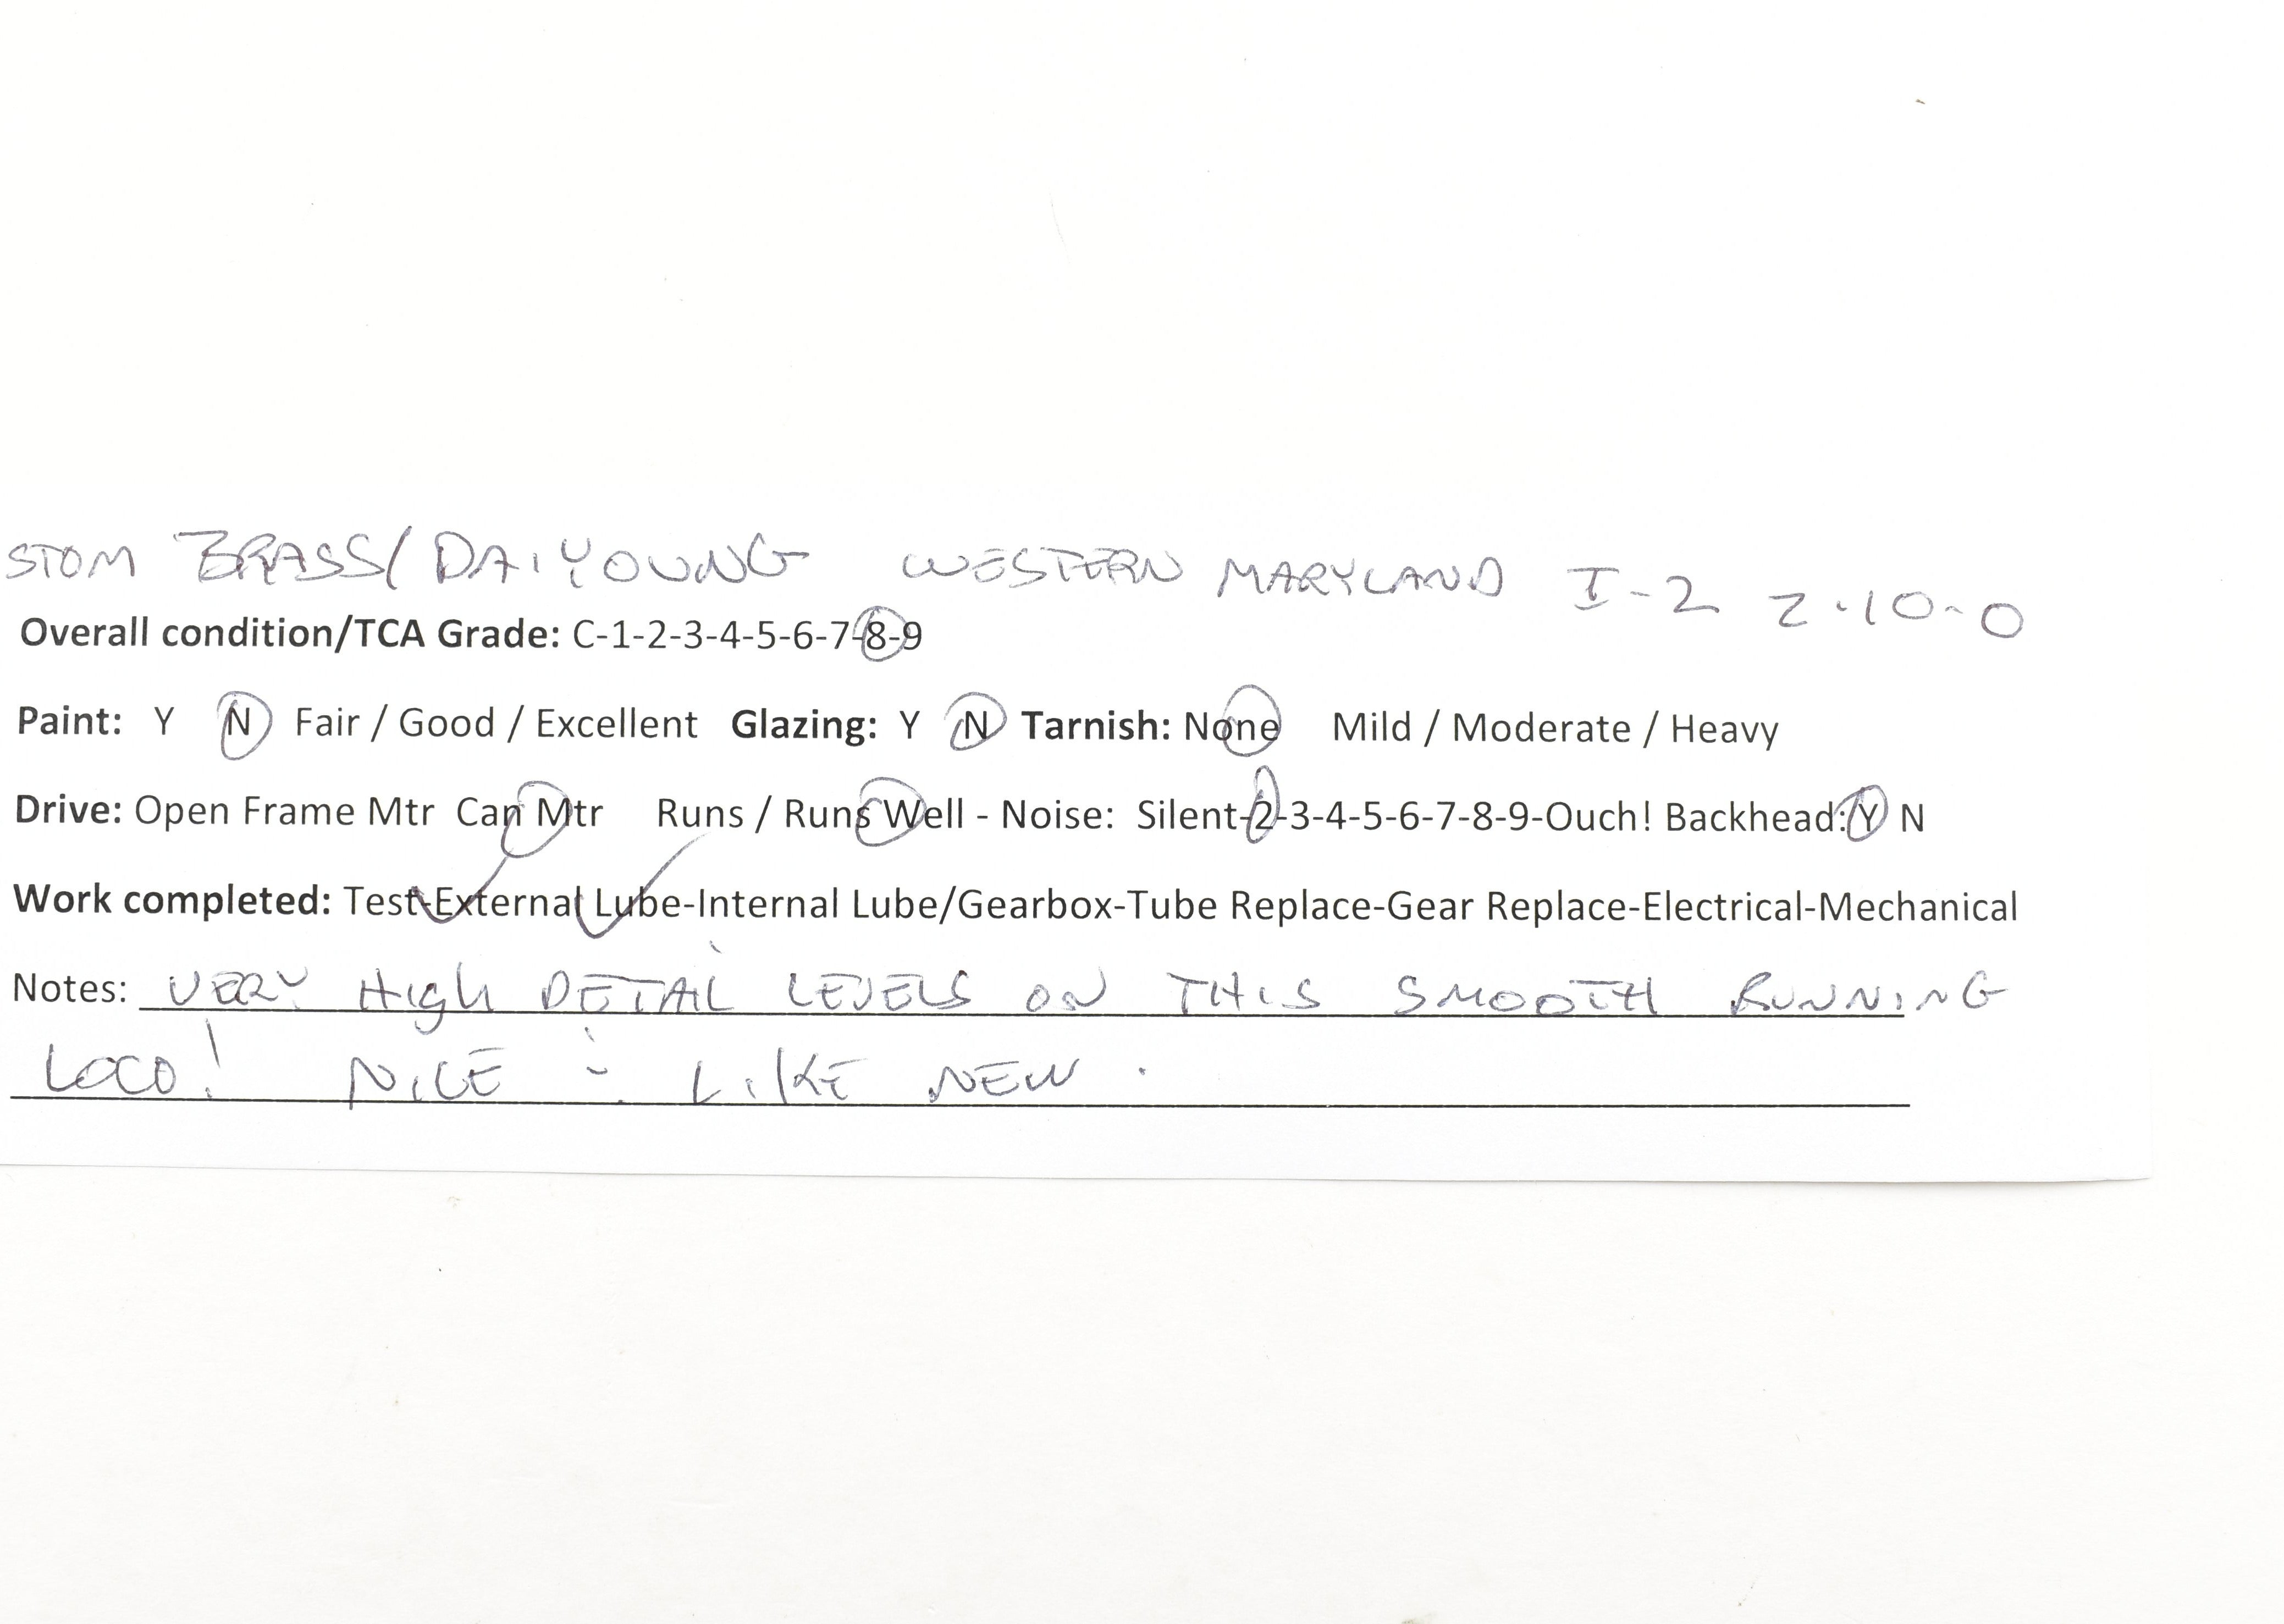 STOM BRASS/DAIYOUNG WESTERN MARYLAND I-2 2-10-0
Overall condition/TCA Grade: C-1-2-3-4-5-6-7-8-9
Paint: Y N Fair / Good / Excellent Glazing: Y N Tarnish: None Mild / Moderate / Heavy
Drive: Open Frame Mtr Can Mtr Runs / Runs Well - Noise: Silent-2-3-4-5-6-7-8-9-Ouch! Backhead: Y N
Work completed: Test-External Lube-Internal Lube/Gearbox-Tube Replace-Gear Replace-Electrical-Mechanical
Notes: VERY HIgh DETAIL LEVELS ON THIS SMOOTH RUNNING
LOCO! NICE - LIKE NEW.